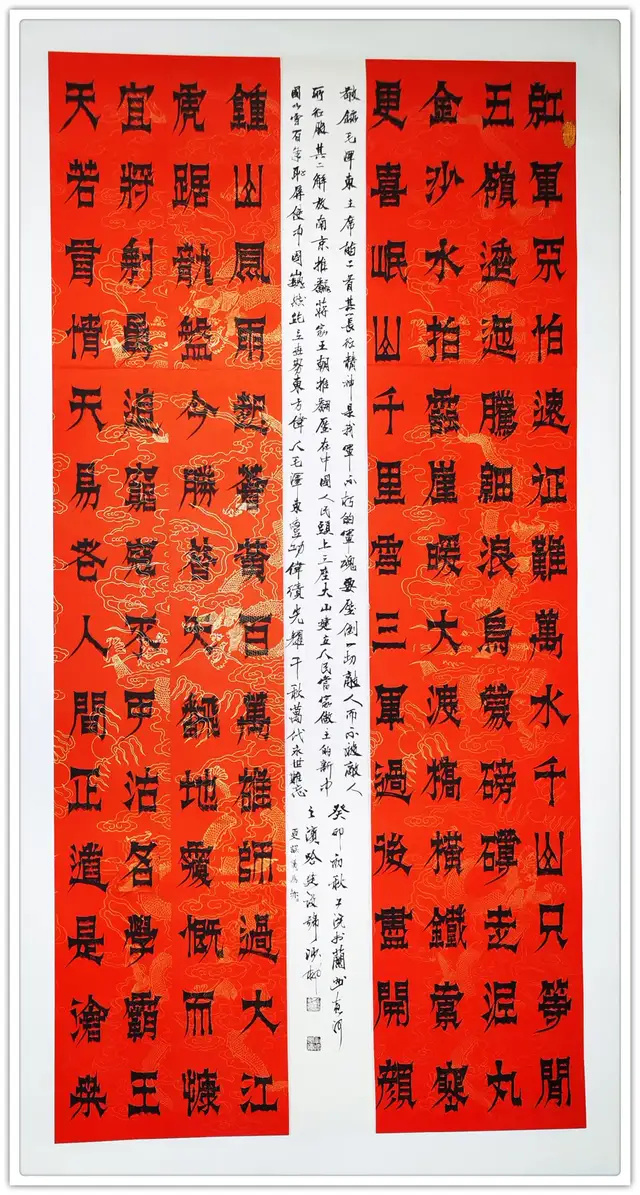 紅軍不怕遠征難萬水千山只等閒
五嶺逶迤騰細浪烏蒙磅礴走泥丸
金沙水拍雲崖暖大渡橋橫鐵索寒
更喜岷山千里雪三軍過後盡開顏
敬錄毛澤東主席的二首其一長征精神是我軍不朽的軍魂要壓倒一切敵人而不被敵人
所征服其二解放南京推翻蔣家王朝推翻壓在中國人民頭上三座大山建立人民當家做主的新中
國以雪百年恥 使中國巍然屹立世界東方偉人毛澤東豐功偉績光耀千秋萬代永世難忘
癸卯初秋 於蘭州黃河
鍾山風雨起蒼黃百萬雄師過大江
虎踞龍盤今勝昔天翻地覆慨而慷
宜將剩勇追窮寇不可沽名學霸王
天若有情天易老人間正道是滄桑